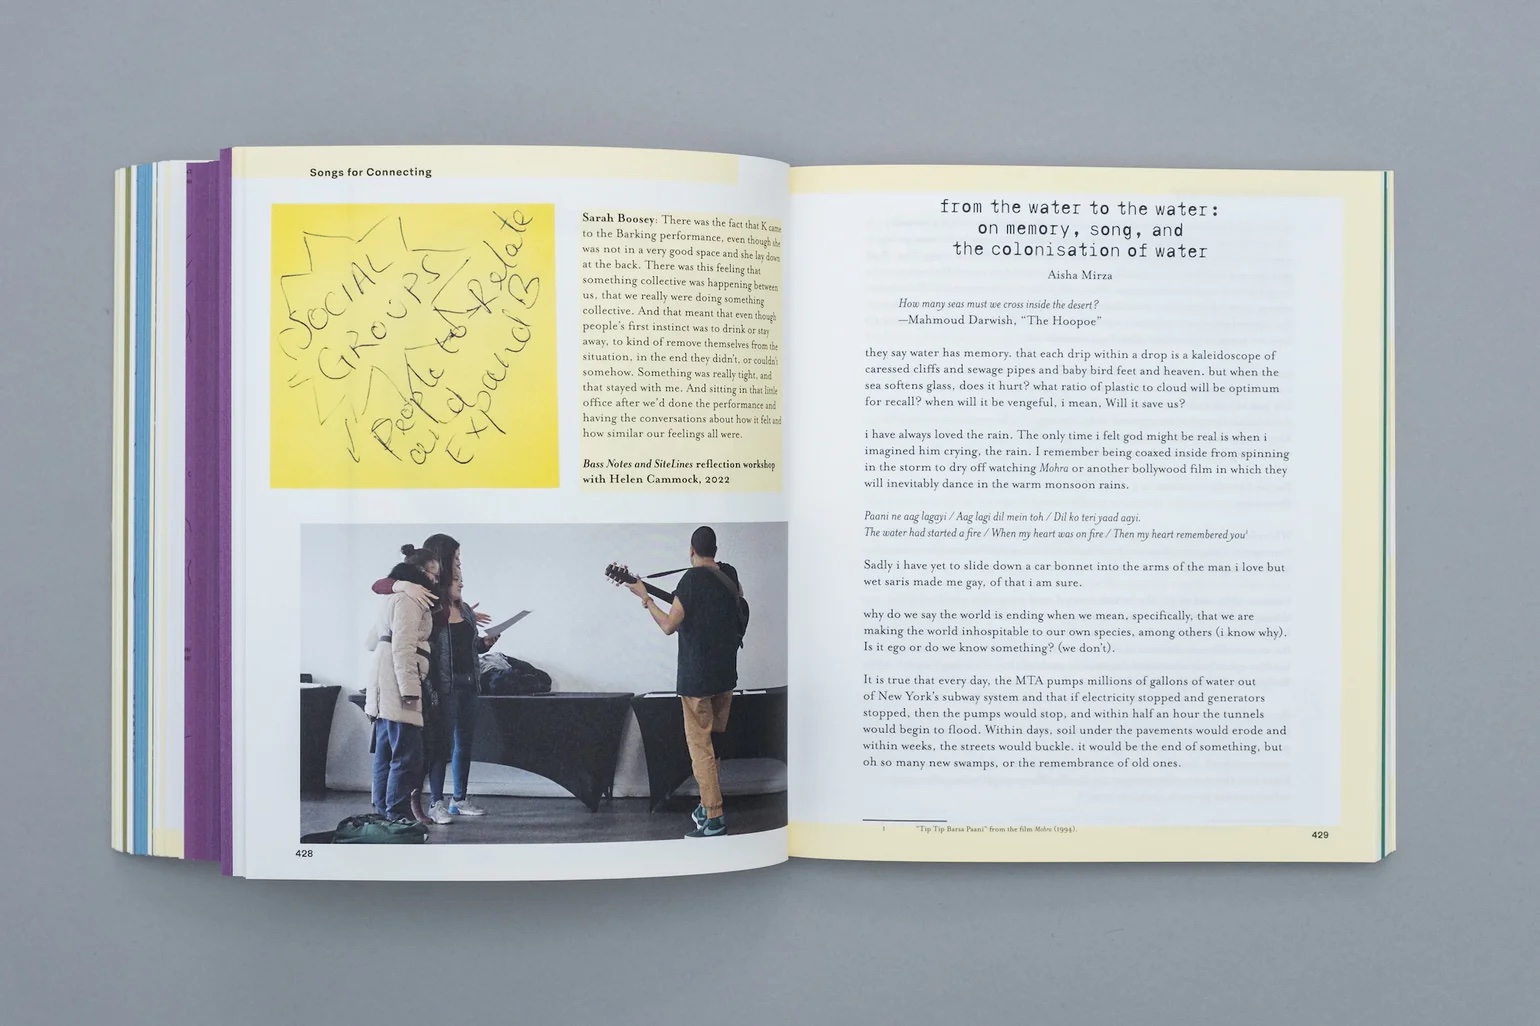 Songs for Connecting
SOCIAL
GROUPS
People to Relate
and
Expand B
Sarah Boosey: There was the fact that K came
to the Barking performance, even though she
was not in a very good space and she lay down
at the back. There was this feeling that
something collective was happening between
us, that we really were doing something
collective. And that meant that even though
people's first instinct was to drink or stay
away, to kind of remove themselves from the
situation, in the end they didn't, or couldn't
somehow. Something was really tight, and
that stayed with me. And sitting in that little
office after we'd done the performance and
having the conversations about how it felt and
how similar our feelings all were.
Bass Notes and SiteLines reflection workshop
with Helen Cammock, 2022
428
from the water to the water:
on memory, song, and
the colonisation of water
Aisha Mirza
How many seas must we cross inside the desert?
—Mahmoud Darwish, "The Hoopoe"
they say water has memory. that each drip within a drop is a kaleidoscope of
caressed cliffs and sewage pipes and baby bird feet and heaven. but when the
sea softens glass, does it hurt? what ratio of plastic to cloud will be optimum
for recall? when will it be vengeful, i mean, Will it save us?
i have always loved the rain. The only time i felt god might be real is when i
imagined him crying, the rain. I remember being coaxed inside from spinning
in the storm to dry off watching Mohra or another bollywood film in which they
will inevitably dance in the warm monsoon rains.
Paani ne aag lagayi / Aag lagi dil mein toh / Dil ko teri yaad aayi.
The water had started a fire / When my heart was on fire / Then my heart remembered you¹
Sadly i have yet to slide down a car bonnet into the arms of the man i love but
wet saris made me gay, of that i am sure.
why do we say the world is ending when we mean, specifically, that we are
making the world inhospitable to our own species, among others (i know why).
Is it ego or do we know something? (we don't).
It is true that every day, the MTA pumps millions of gallons of water out
of New York's subway system and that if electricity stopped and generators
stopped, then the pumps would stop, and within half an hour the tunnels
would begin to flood. Within days, soil under the pavements would erode and
within weeks, the streets would buckle. it would be the end of something, but
oh so many new swamps, or the remembrance of old ones.
1 "Tip Tip Barsa Paani" from the film Mohra (1994).
429